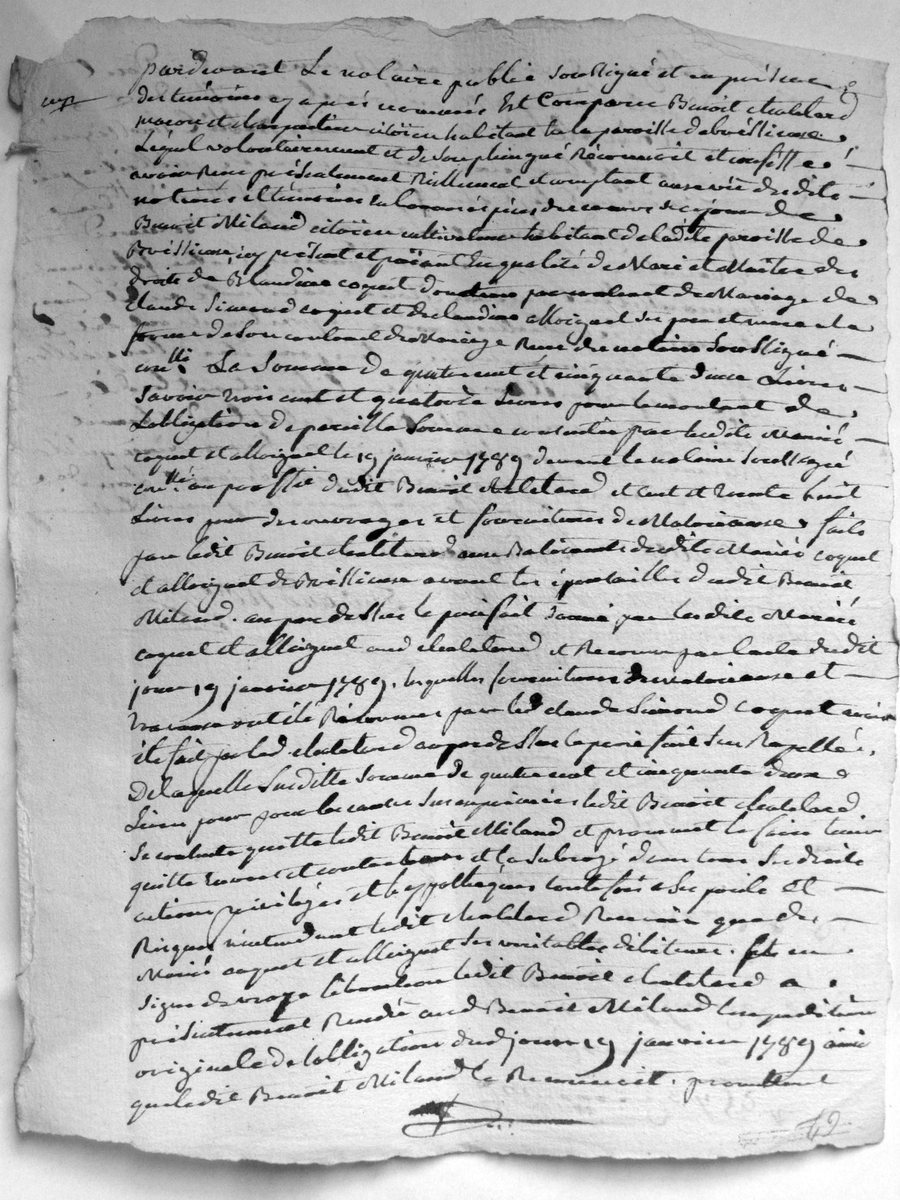 pardevant Le notaire public Soussigné et en présence
des témoins cy après nommés Est Comparu Benoit chatelard
maçon et charpentier citoïen habitant la paroisse de brissieux
Lequel volontairement et de Son plin gré Reconnoit et confesse
avoir Reçu présentement Réellement et comptant au vû desdits
notaire et témoins En bonnes espèces de cours de ce jour de
Benoit Miland citoïen cultivateur habitant de ladite paroisse de
Brissieux, icy présent et païant En qualité de Mari et Maitre des
droits de Blandine coquet donataire par contrat de Mariage de
claude Simond coquet et de claudine alloignet Ses père et mere en la
forme de Son contrat de Mariage Reçu du notaire Soussigné
La Somme de quatre cent et cinquante deux Livres
Savoir trois cent et quatorze Livres pour le montant de
L'obligation de pareille Somme consentie par lesdits Mariés
coquet et alloignet le 19 janvier 1789 devant le notaire Soussigné
au proffit dudit Benoit chatelard et cent et trente huit
Livres pour des ouvrages et fournitures de Matereaux, faits
par ledit Benoit chatelard aux Batiments desdits Mariés coquet
et alloignet de Brissieux avant les épousailles dudit Benoit
Miland. au par dessus le prix fait donné par lesdits Mariés
coquet et alloignet aud chatelard et Reconnu par l'acte dudit
jour 19 janvier 1789, lesquelles fournitures de matereaux et
travaux ont été Reconnus par led claude Simond coquet avoir
été fait par led chatelard au par dessus le prix fait Sus Rapellé,
De laquelle Susditte Somme de quatre cent et cinquante deux
Livres pour pour les causes Sus exprimées ledit Benoit chatelard
Se contente quitte ledit Benoit Miland et promet le faire tenir
quitte Envers et contre tous et la Subrogé dans tous Ses droits
actions privilèges et hyppothèques toutefois a Ses perils et
Risques n'entendant ledit chatelard Retenir que des
Mariés coquet et alloignet Ses veritables débiteurs. et en
Signe de vraye libération ledit Benoit chatelard a
présentement Rendu aud Benoit Miland L'expédition
originale de l'obligation dud jour 19 janvier 1789 ainsi
que ledit Benoit Miland le Reconnoit. promettant
42